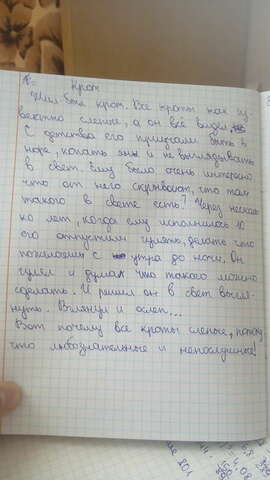 Крот
Жил был крот. Все кроты как из
вестно слепые, а он всё видел.
С детства его приучали быть в
норе, копать ямы и не выглядывать
в свет. Ему было очень интересно
что от него скрывают, что там
такого в свете есть? Через несколь
ко лет, когда ему исполнилось 10
его отпустили гулять, делать что
пожелаешь с утра до ночи. Он
гулял и думал что такого можно
сделать. И решил он в свет выгля-
нуть. Взглянул и ослеп...
Вот почему все кроты слепые, потому
что любознательные и непослушные!